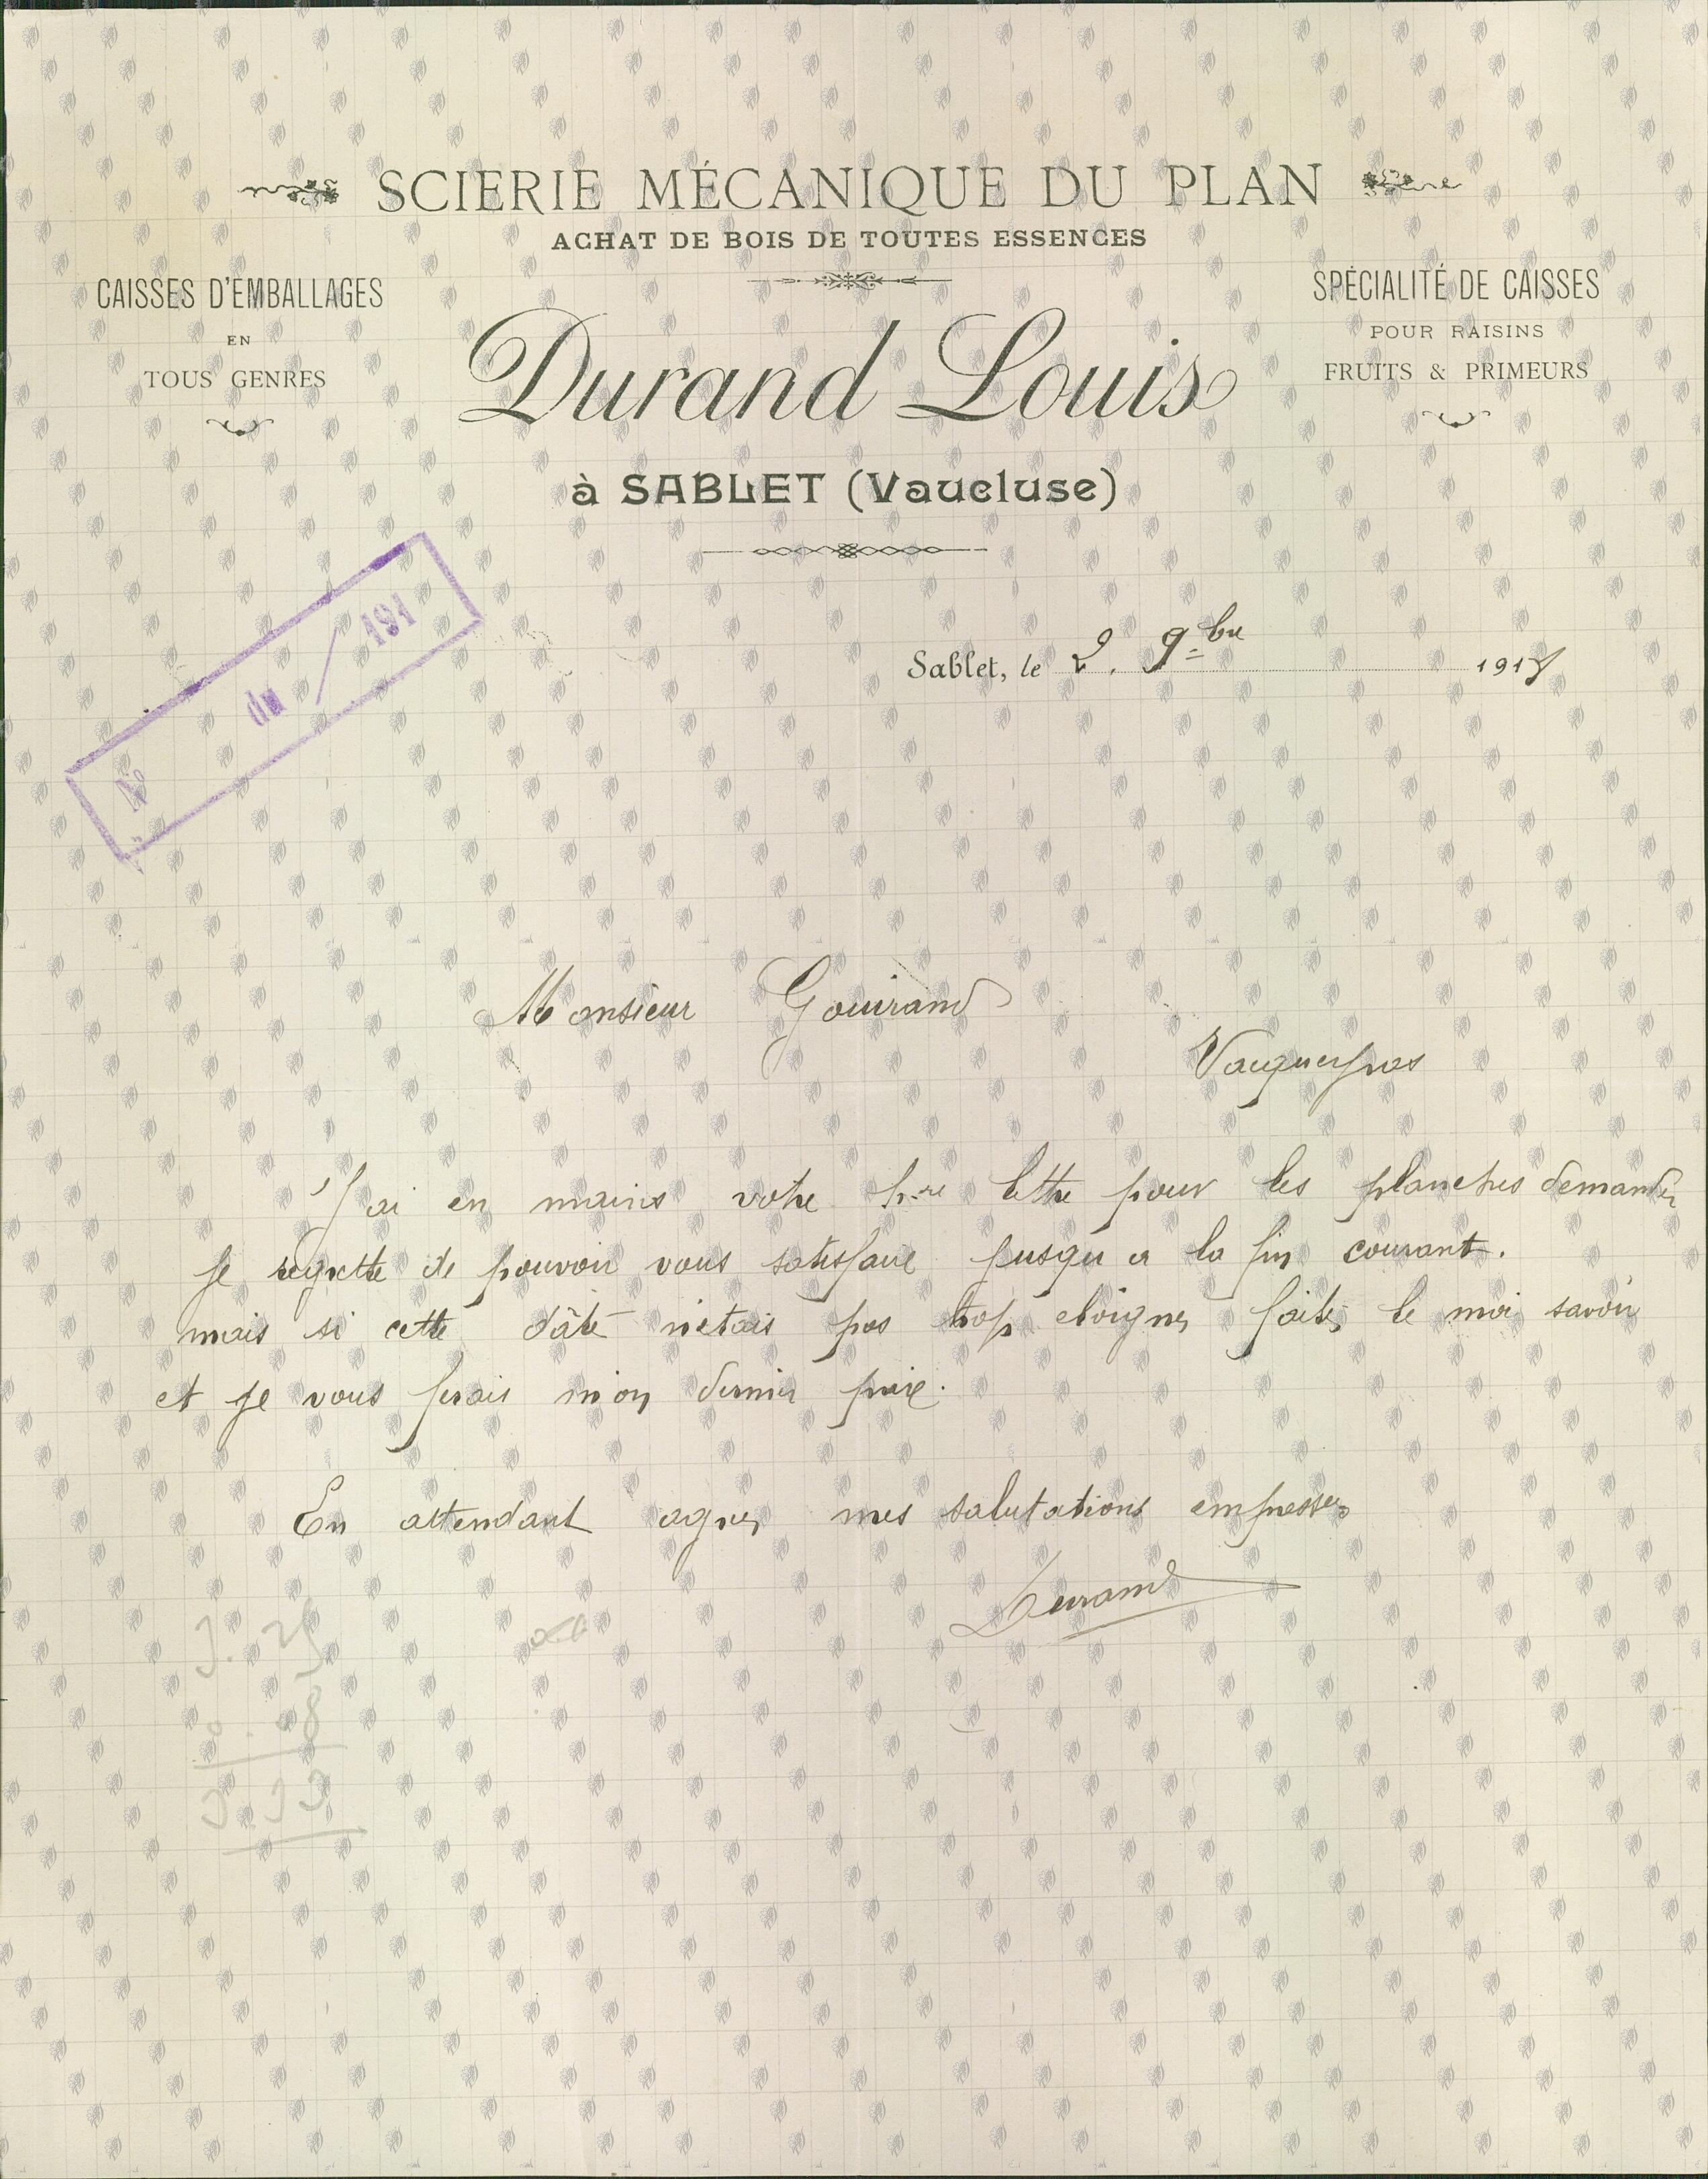 SCIERIE MÉCANIQUE DU PLAN
ACHAT DE BOIS DE TOUTES ESSENCES
CAISSES D'EMBALLAGES
EN
TOUS GENRES
SPÉCIALITÉ DE CAISSES
POUR RAISINS
FRUITS & PRIMEURS
Durand Louis
à SABLET (Vaucluse)
N° du / 191
Sablet, le 2. 9bre 191
Monsieur Gouirand
Vacqueyras
J'ai en mains votre lettre pour les planches demander
je regrette de pouvoir vous satisfaire jusqu a la fin courant.
mais si cette dâte n'etais pas trop eloigner faites le moi savoir
et je vous ferais mon dernier prix.
En attendant agrer mes salutations empresser
Durand